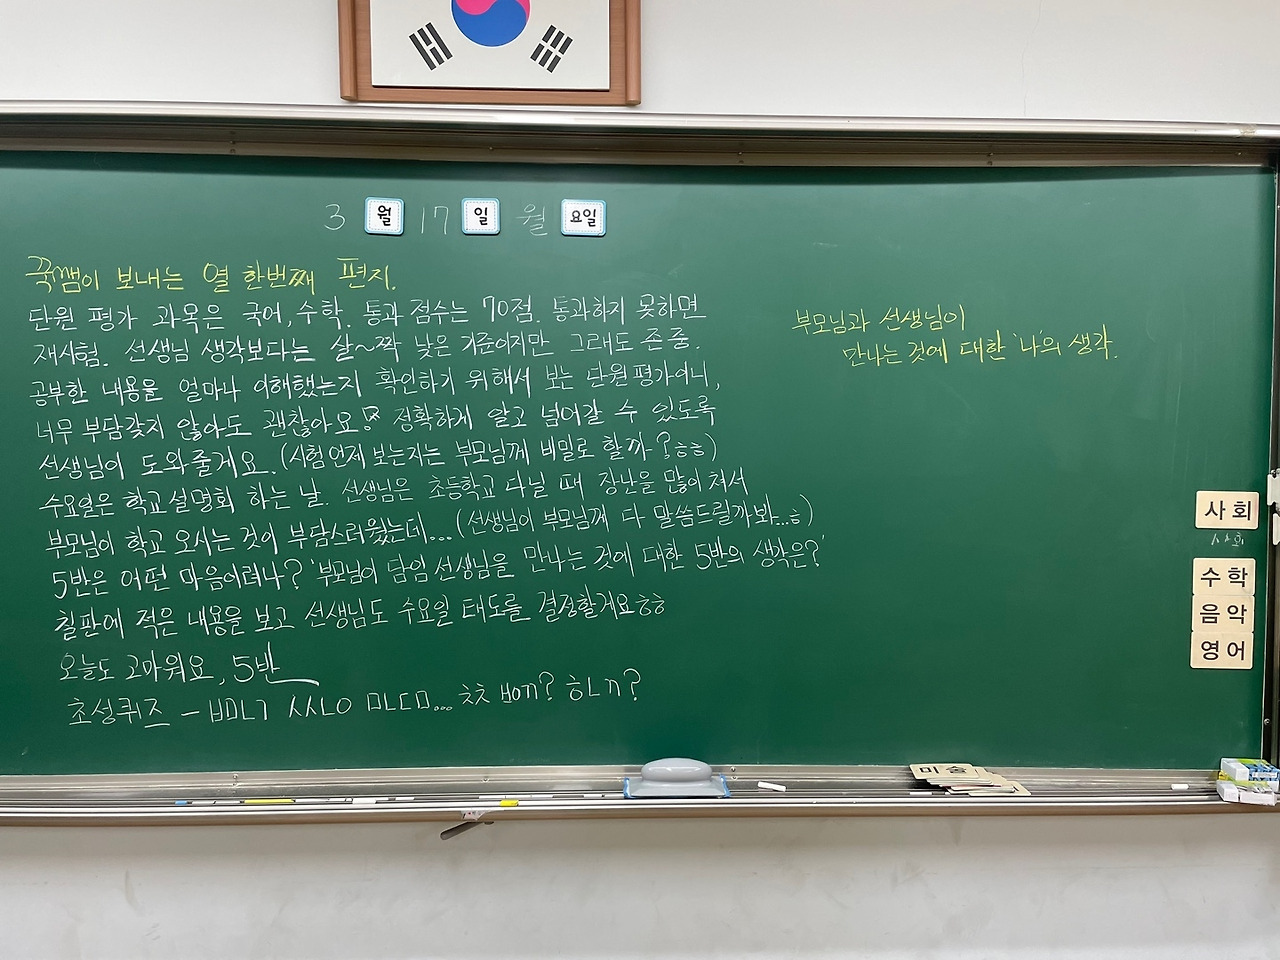 3 월 17 일 월 요일
꾹쌤이 보내는 열 한번째 편지.
단원 평가 과목은 국어, 수학. 통과 점수는 70점. 통과하지 못하면
재시험. 선생님 생각보다는 살~짝 낮은 기준이지만 그래도 존중.
공부한 내용을 얼마나 이해했는지 확인하기 위해서 보는 단원평가이니,
너무 부담갖지 않아도 괜찮아요! 정확하게 알고 넘어갈 수 있도록
선생님이 도와줄게요. (시험 언제 보는지는 부모님께 비밀로 할까?ㅎㅎ)
수요일은 학교설명회 하는 날. 선생님은 초등학교 다닐 때 장난을 많이 쳐서
부모님이 학교 오시는 것이 부담스러웠는데... (선생님이 부모님께 다 말씀드릴까봐...ㅎ)
5반은 어떤 마음이려나? '부모님이 담임 선생님을 만나는 것에 대한 5반의 생각은?'
칠판에 적은 내용을 보고 선생님도 수요일 태도를 결정할게요ㅎㅎ
오늘도 고마워요, 5반
초성퀴즈 - ㅂㅁㄴㄱ ㅅㅅㄴㅇ ㅁㄴㄷㅁ... ㅊㅊ ㅂㅇㄲ? ㅎㄴㄲ?
부모님과 선생님이
만나는 것에 대한 '나'의 생각.
사회
사회
수학
음악
영어
미술